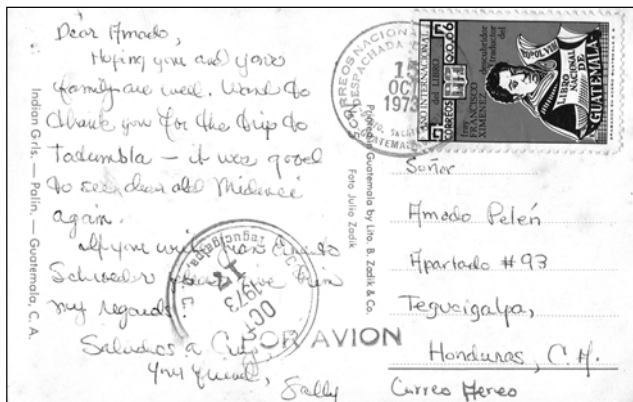 Dear Amado,
Hoping you and your
family are well. Want to
thank you for the trip to
Tatumbla — it was good
to see dear old Midence
again.
If you
Schroeder please give him
my regards?
Saludos a
Your friend,
Sally
Indian Girls. — Palin. — Guatemala, C. A.
Foto Julio Zadik
Printed in Guatemala by Lito. B. Zadik & Co.
CORREOS NACIONALES
DESPACHADA
15
OCT
1973
GUATEMALA
AÑO INTERNACIONAL
del LIBRO
CORREOS 0.06
fray
FRANCISCO
XIMENEZ
descubridor
traductor del
POPOL VUH
LIBRO
NACIONAL
DE
GUATEMALA
Tegucigalpa,
OCT
1973
POR AVION
Señor
Amado Pelén
Apartado #93
Tegucigalpa,
Honduras, C.A.
Correo Aereo